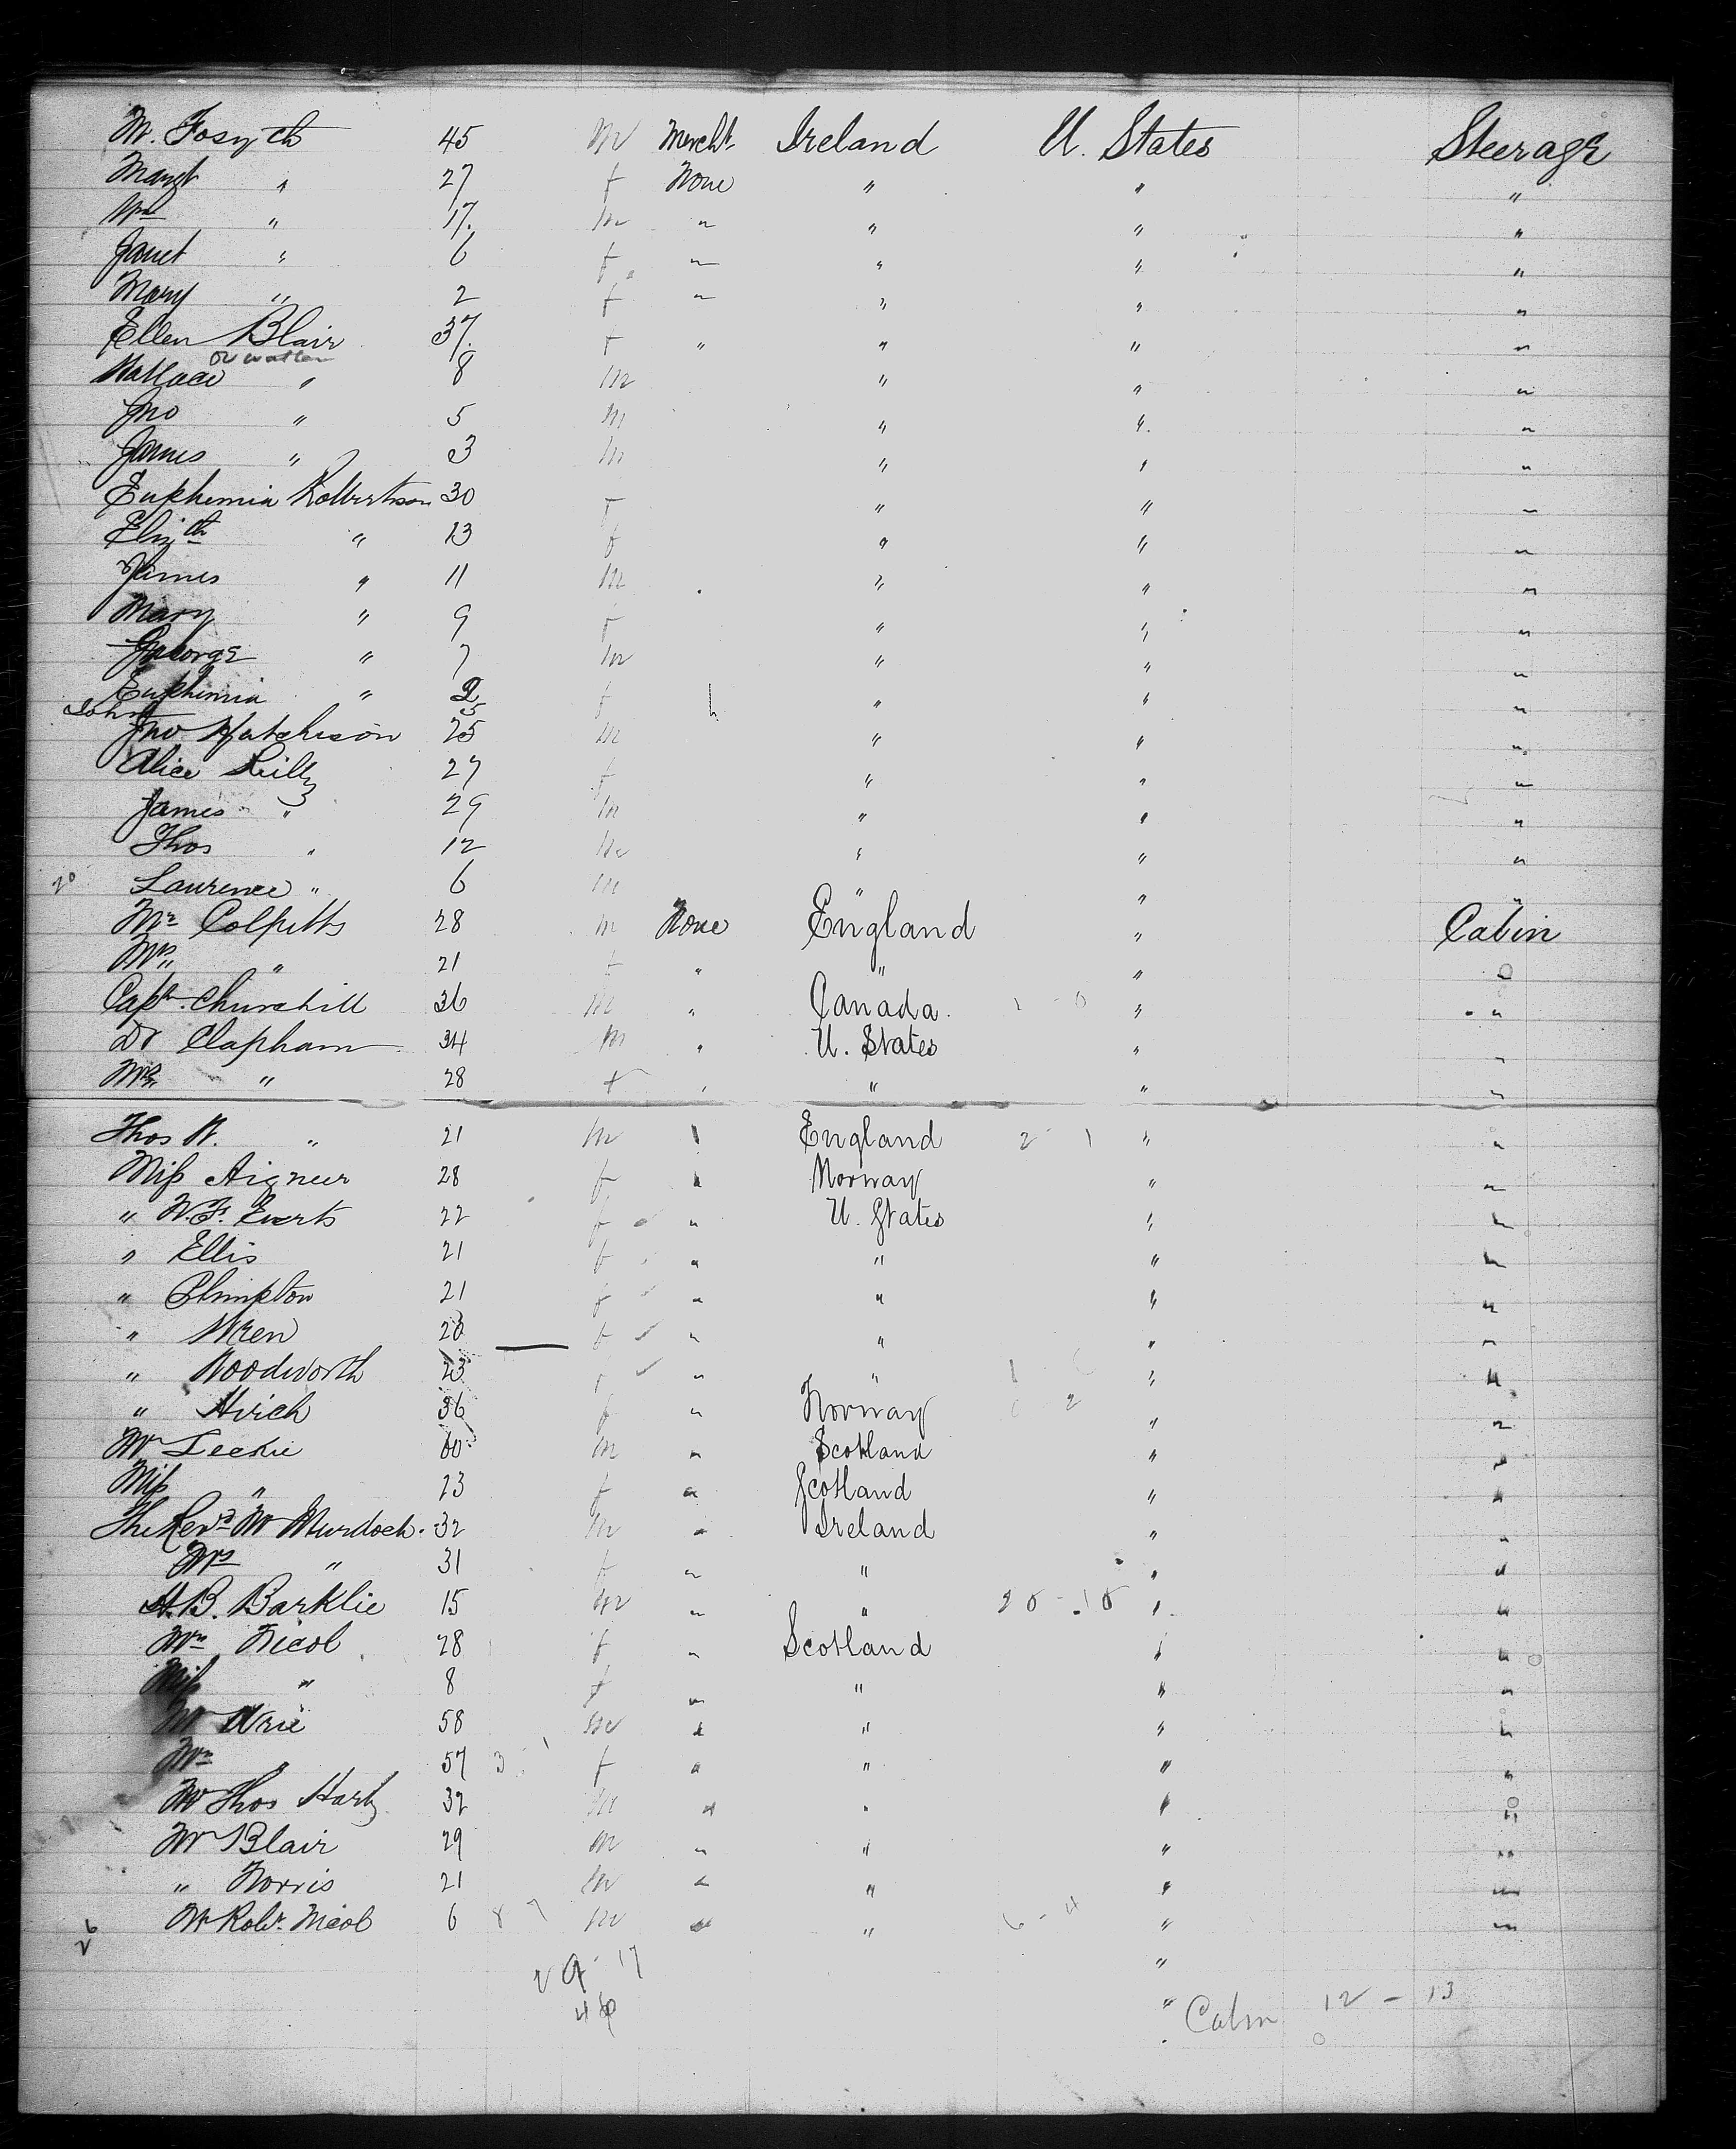 M. Fosyth 45 M Mercht. Ireland U. States Steerage
Margt " 27 f None " " "
Wm " 17. m " " " "
Janet " 6 f " " " "
Mary " 2 f " " " "
Ellen Blair 37. f " " " "
or watler
Wallace " 8 m " " "
Jno " 5 m " " "
James " 3 m " " "
Euphemia Robertson 30 f " " "
Elizth " 13 f " " "
James " 11 m " " "
Mary " 9 f " " "
George " 7 m " " "
Euphemia " 2 f " " "
John 5
Jno Hutchison 25 m " " "
Alice Reilly 27 f " " "
James " 29 m " " "
Thos " 12 m " " "
20 Laurence " 6 m " " "
Mr Colpitts 28 m None England " Cabin
Mrs " 21 f " " " "
Capt. Churchill 36 m " Canada. 1 - 0 " "
Dr Clapham 34 m " U. States " "
Mrs " 28 f " " " "
Thos W. " 21 m " England 2 - 1 " "
Miss Aigneur 28 f " Norway " "
" W. F. Everts 22 f " U. States " "
" Ellis 21 f " " " "
" Plimpton 21 f " " " "
" Wren 23 f " " " "
" Woodworth 23 f " " " "
" Hirch 36 f " Norway 2 " "
Mr Leckie 60 m " Scotland " "
Miss " 23 f " Scotland " "
The Revd. Mr Murdoch. 32 m " Ireland " "
Mrs " 31 f " " " "
H. B. Barklie 15 m " " 20 - 18 " "
Mrs Nicol 28 f " Scotland " "
Miss " 8 f " " " "
Mr Wrie 58 m " " " "
Mrs " 57 3 - 1 f " " " "
Mr Thos Harty 32 m " " " "
Mr Blair 29 m " " " "
" Norris 21 m " " " "
26 Mr Robt. Nicol 6 8 7 m " " 6 - 4 " "
29 - 17 "
46 " Cabin 12 - 13
0